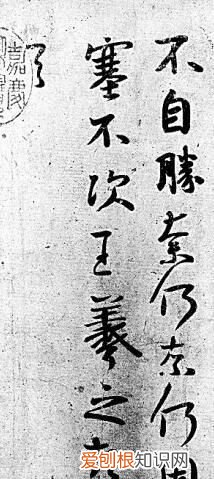 不自勝奈何奈何因
塞不次王羲之
嘉慶
爱刨根知识网